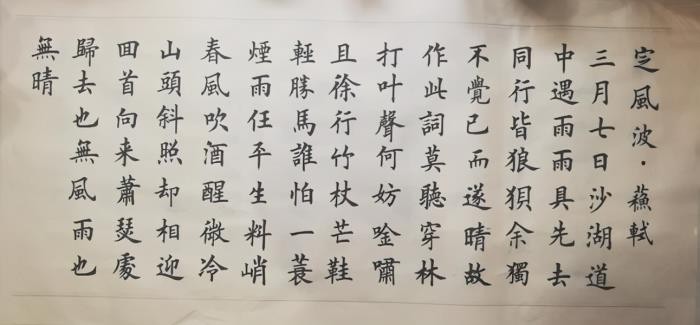 㝎風波·蘓軾
三月七日沙湖道
中遇雨雨具先去
同行皆狼狽余獨
不覺已而遂晴故
作此詞莫聽穿林
打叶聲何妨唫嘯
且徐行竹杖芒鞋
輕勝馬誰怕一蓑
煙雨任平生料峭
春風吹酒醒微冷
山頭斜照却相迎
回首向来蕭瑟處
歸去也無風雨也
無晴